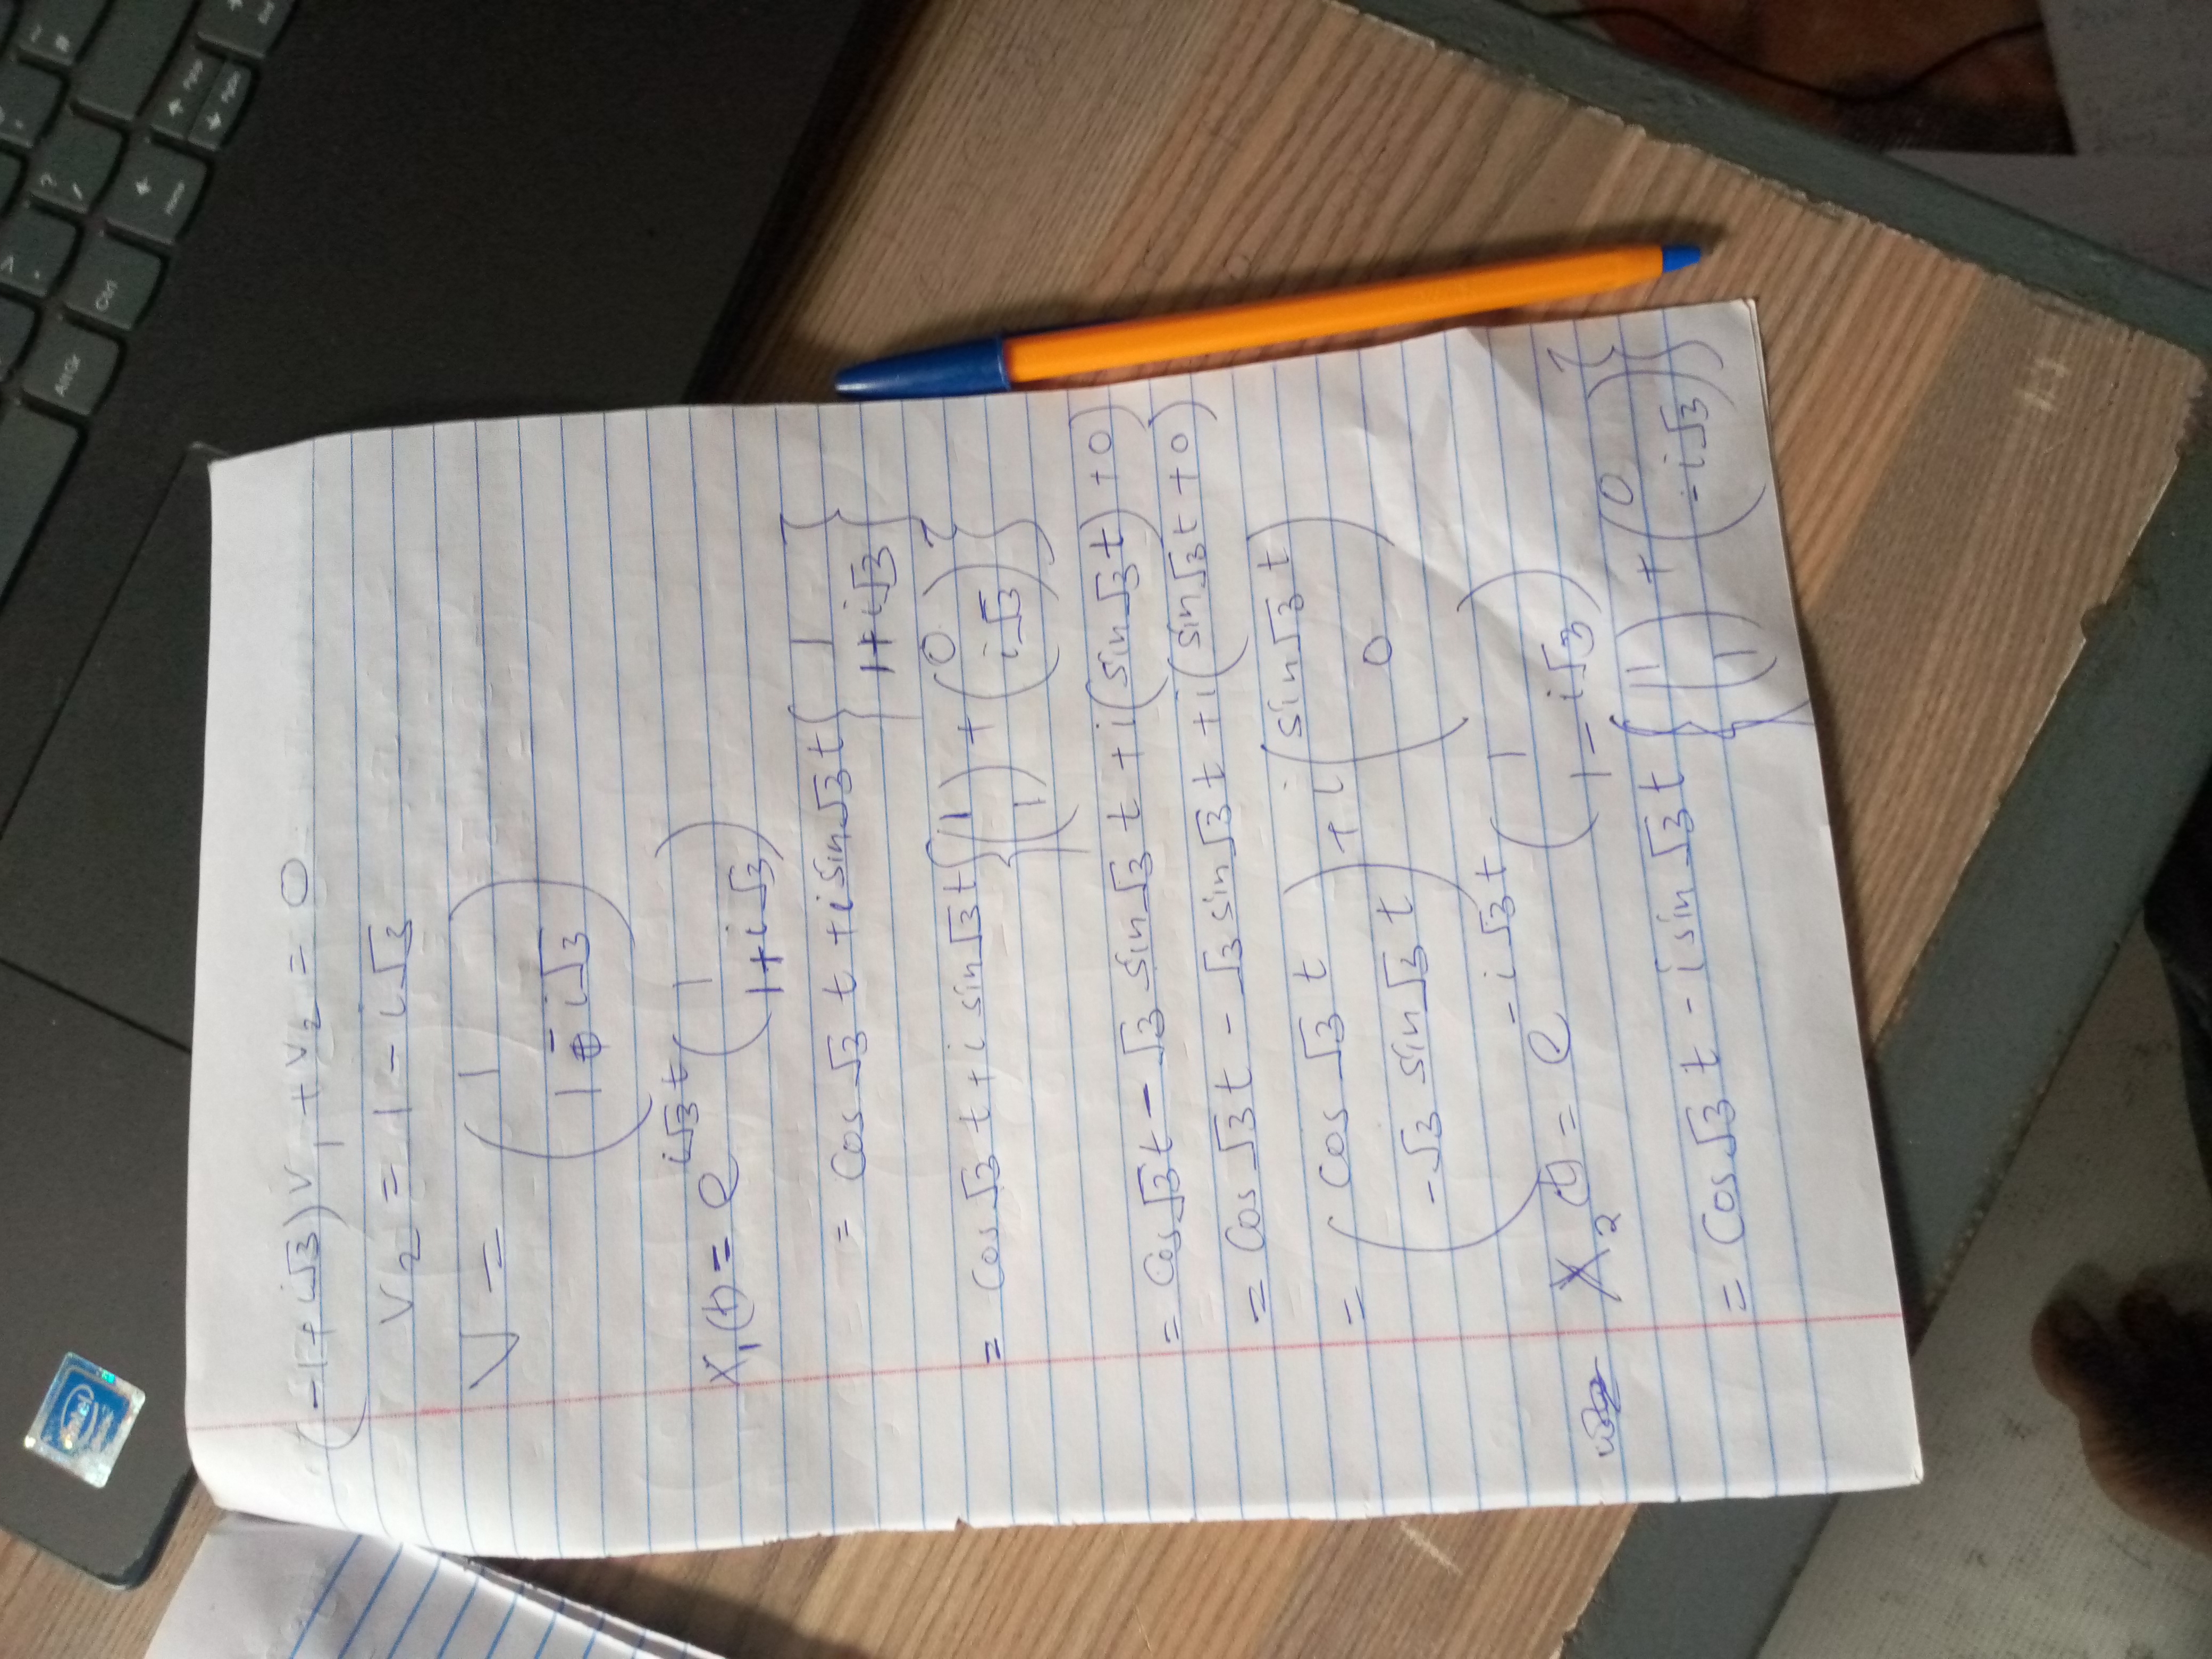 (-1+i√3)v₁ + v₂ = 0
v₂ = 1 - i√3
V = ( 1
1 - i√3 )
X₁(t) = e^{i√3t} ( 1
1+i√3 )
= Cos√3t + i sin√3t { 1
1+i√3 }
= Cos√3t + i sin√3t { (1
1) + (0
i√3) }
= Cos√3t - √3 sin√3t + i(sin√3t) + 0)
= Cos√3t - √3 sin√3t + i(sin√3t + 0)
= ( Cos√3t
-√3 sin√3t ) + i ( sin√3t
0 )
X₂(t) = e^{-i√3t} ( 1
1 - i√3 )
= Cos√3t - i sin√3t { (1
1) + (0
-i√3) }
intel
AltGr
Ctrl
Home
PgUp
PgDn